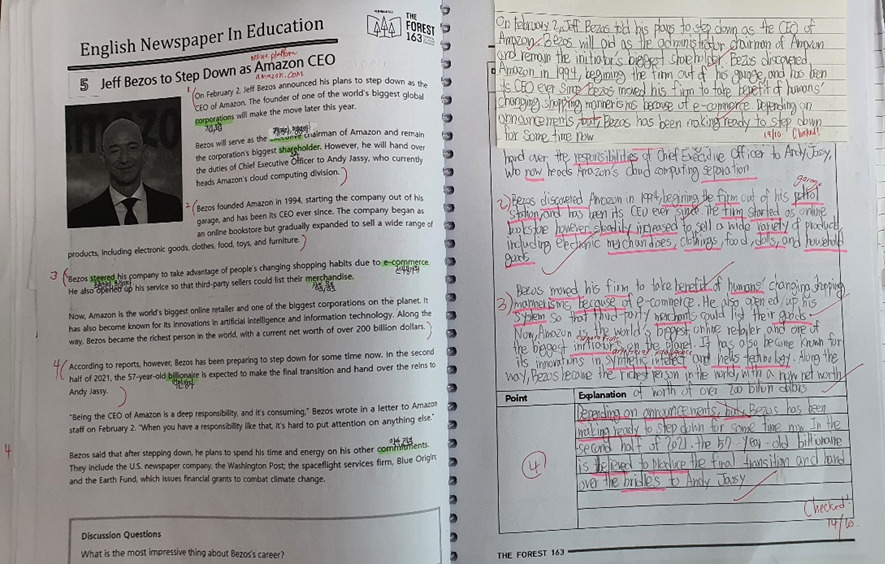 English Newspaper In Education
THE
FOREST
163
online platform
5 Jeff Bezos to Step Down as Amazon CEO
amazon.com
1 On February 2, Jeff Bezos announced his plans to step down as the
CEO of Amazon. The founder of one of the world's biggest global
corporations will make the move later this year.
Bezos will serve as the executive chairman of Amazon and remain
the corporation's biggest shareholder. However, he will hand over
the duties of Chief Executive Officer to Andy Jassy, who currently
heads Amazon's cloud computing division.
2 Bezos founded Amazon in 1994, starting the company out of his
garage, and has been its CEO ever since. The company began as
an online bookstore but gradually expanded to sell a wide range of
products, including electronic goods, clothes, food, toys, and furniture.
3 Bezos steered his company to take advantage of people's changing shopping habits due to e-commerce.
He also opened up his service so that third-party sellers could list their merchandise.
Now, Amazon is the world's biggest online retailer and one of the biggest corporations on the planet. It
has also become known for its innovations in artificial intelligence and information technology. Along the
way, Bezos became the richest person in the world, with a current net worth of over 200 billion dollars.
4 According to reports, however, Bezos has been preparing to step down for some time now. In the second
half of 2021, the 57-year-old billionaire is expected to make the final transition and hand over the reins to
Andy Jassy.
"Being the CEO of Amazon is a deep responsibility, and it's consuming," Bezos wrote in a letter to Amazon
staff on February 2. "When you have a responsibility like that, it's hard to put attention on anything else."
4
Bezos said that after stepping down, he plans to spend his time and energy on his other commitments.
They include the U.S. newspaper company, the Washington Post; the spaceflight services firm, Blue Origin;
and the Earth Fund, which issues financial grants to combat climate change.
Discussion Questions
What is the most impressive thing about Bezos's career?
On February 2, Jeff Bezos told his plans to step down as the CEO of
Amazon. Bezos will aid as the administrator chairman of Amazon
and remain the initiator's biggest shareholder. Bezos discovered
Amazon in 1994, begining the firm out of his garage, and has been
its CEO ever since. Bezos moved his firm to take benefit of humans'
changing shopping mannerisms because of e-commerce Depending on
announcements, but, Bezos has been making ready to step down
for some time now
Checked!
hand over the responsibilities of Chief Executive Officer to Andy Jassy,
who now heads Amazon's cloud computing separation
garage
2) Bezos discovered Amazon in 1994, begining the firm out of his petrol
station, and has been its CEO ever since. The firm started as online
bookstore however steadily increased to sell a wide variety of products,
including electronic merchandises, clothings, food, dolls, and household
goods
Bezos moved his firm to take benefit of humans' changing shopping
3) mannerisms because of e-commerce. He also opened up his
system so that third-party merchants could list their goods
Now, Amazon is the world's biggest online retailer and one of
the biggest on the planet. It has also become known for
its innovations in synthetic interest and technology. Along the
way, Bezos became the richest person in the world, with a net worth
of worth of over 200 billion dollars
Point
Explanation
4
Depending on announcements, but, Bezos has been
making ready to step down for some time now. In the
second half of 2021, the 57-year-old billionaire
is believed to produce the final transition and hand
over the bridles to Andy Jassy
Checked!
14/10
THE FOREST 163